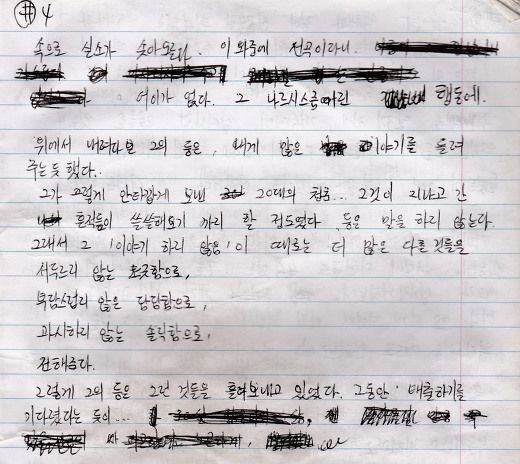 #4
속으로 실소가 솟아오른다. 이 와중에 전곡이라니.
어이가 없다. 그 나르시스즘어린 탭들에.
위에서 내려다본 그의 등은, 내게 많은 이야기를 들려
주는듯 했다..
그가 그렇게 안타깝게 보낸 20대의 청춘... 그것이 지나고 간
흔적들이 쓸쓸해보기 까지 할 정도였다. 등은 말을 하지 않는다.
그래서 그 '이야기 하지 않음'이 때로는 더 많은 다른 것들을
서두르지 않는 으로,
부담스럽지 않은 담담함으로,
과시하지 않는 솔직함으로,
전해준다.
그렇게 그의 등은 그런 것들을 흘려보내고 있었다. 그동안 배출하기를
기다렸다는 듯이...